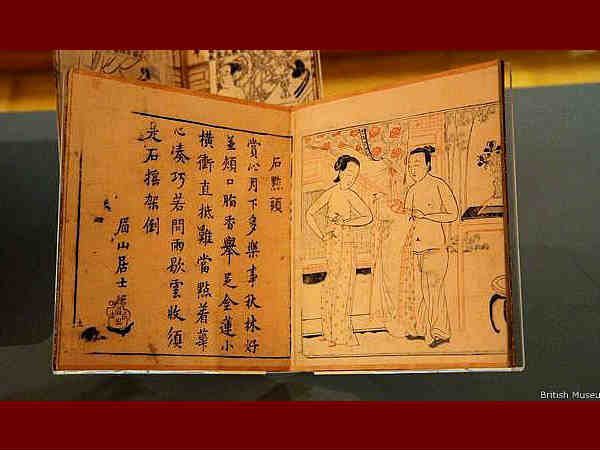 石點頭
賞心月下多樂事秋林好
並頰口脂香舉足金蓮小
橫衝直抵難當點着華
心湊巧若問雨歇雲收須
是石搖架倒
眉山居士
British Museu